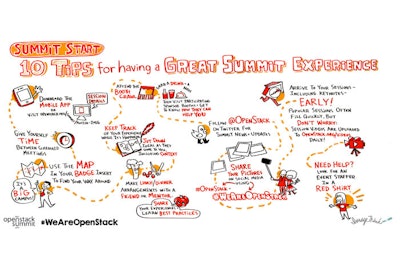 SUMMIT START
10 TIPS for having a GREAT SUMMIT EXPERIENCE
DOWNLOAD THE
MOBILE APP
SESSION
DETAILS
GIVE YOURSELF
TIME
BETWEEN
MEETINGS
USE THE MAP
IN YOUR BADGE INSERT
TO FIND YOUR WAY AROUND
IT'S A
BIG
CAMPUS!
ATTEND THE
BOOTH
CRAWL
GRAB A DRINK
THEN VISIT PARTICIPATING
KNOW HOW THEY CAN
HELP YOU!
KEEP TRACK
OF YOUR EXPERIENCE
JOT DOWN
IDEAS AS THEY
COME TO YOU
MAKE LUNCH/DINNER
ARRANGEMENTS WITH A
FRIEND OR MENTOR
SHARE
YOUR EXPERIENCES
LEARN BEST PRACTICES
FOLLOW
@OPENSTACK
ON TWITTER FOR
SUMMIT NEWS + UPDATES
SHARE
YOUR PICTURES
ON SOCIAL MEDIA
@OPENSTACK
#WEAREOPENSTACK
ARRIVE TO YOUR SESSIONS
- INCLUDING KEYNOTES -
EARLY!
POPULAR SESSIONS OFTEN
FILL QUICKLY, BUT
DON'T WORRY!
SESSION VIDEOS ARE UPLOADED
DAILY!
NEED HELP?
LOOK FOR AN
EVENT STAFFER
IN A
RED SHIRT
openstack
summit
#WeAreOpenStack